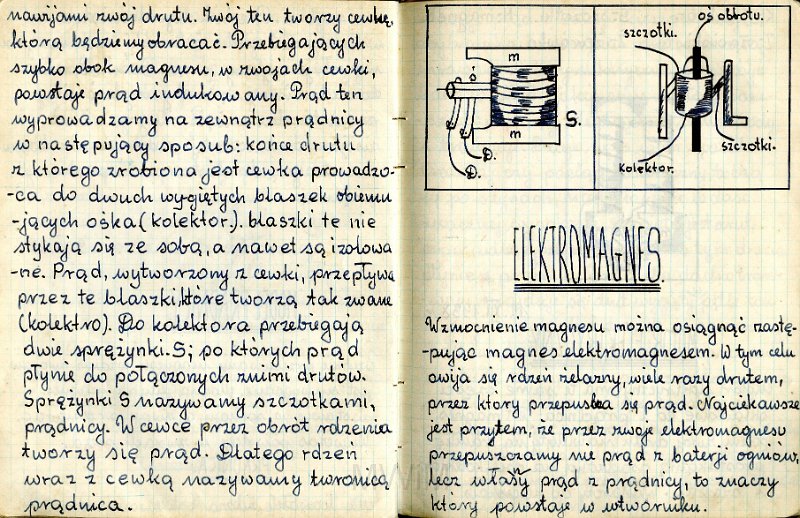 nawijami zwój drutu. Zwój ten tworzy cewkę,
którą będziemy obracać. Przebiegających
szybko obok magnesu, w zwojach cewki,
powstaje prąd indukowany. Prąd ten
wyprowadzamy na zewnątrz prądnicy
w następujący sposub: końce drutu
z którego zrobiona jest cewka prowadzo-
-ca do dwuch wygiętych blaszek obiemu
-jących ośka (kolektor.). blaszki te nie
stykają się ze sobą, a nawet są izolowa
-ne. Prąd, wytworzony z cewki, przepływa
przez te blaszki, które tworzą tak zwane
(kolektro). Do kolektora przebiegają
dwie sprężynki. S; po których prąd
płynie do połączonych znimi drutów.
Sprężynki S nazywamy szczotkami,
prądnicy. W cewce przez obrót rdzenia
tworzy się prąd. Dlatego rdzeń
wraz z cewką nazywamy twornicą
prądnica.
m
S.
m
D.
D.
oś obrotu.
szczotki.
szczotki.
kolektor.
ELEKTROMAGNES.
Wzmocnienie magnesu można osiągnąć zastę-
-pując magnes elektromagnesem. W tym celu
owija się rdzeń żelazny, wiele razy drutem,
przez który przepuska się prąd. Najciekawsze
jest przytem, że przez zwoje elektromagnesu
przepuszczamy nie prąd z baterji ogniów,
lecz własny prąd z prądnicy, to znaczy
który powstaje w wtworniku.